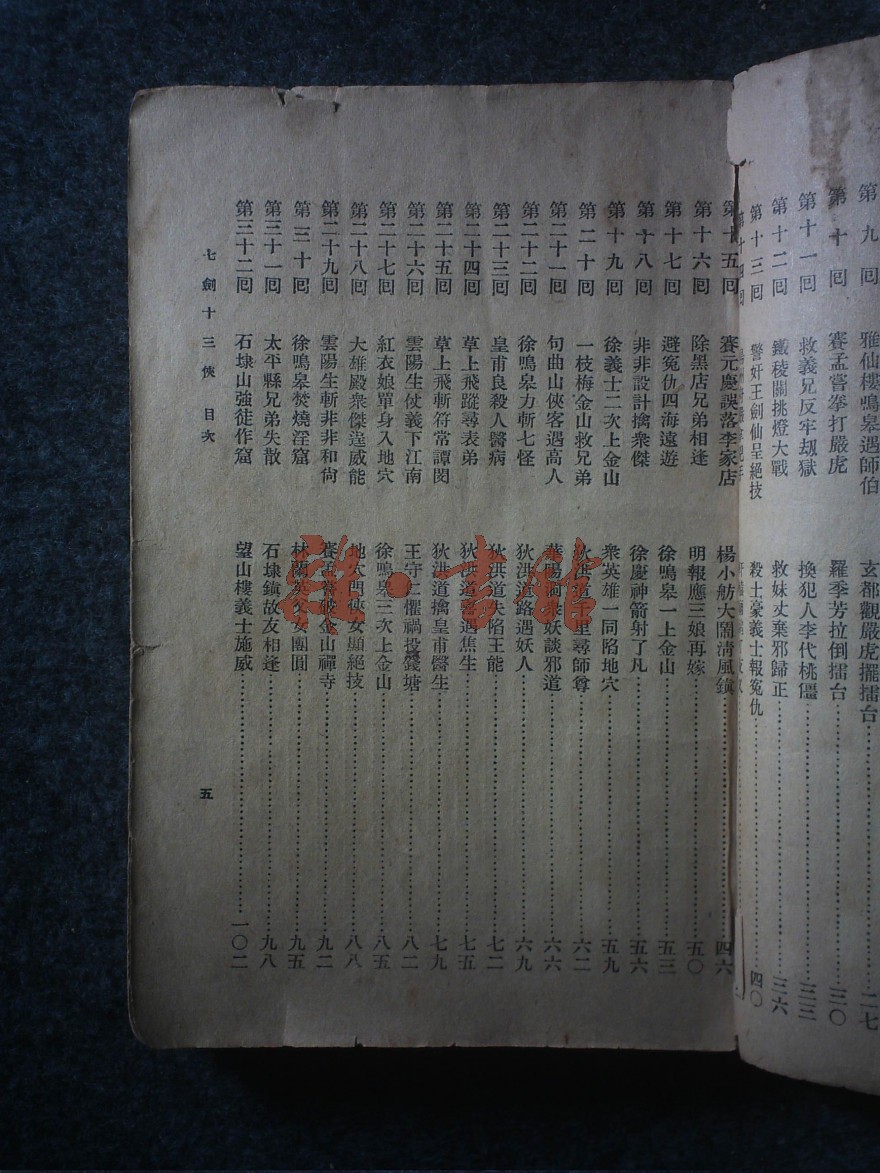 第九回 雅仙樓鳴皋遇師伯 玄都觀嚴虎擺擂台 二七
第十回 賽孟嘗拳打嚴虎 羅季芳拉倒擂台 三〇
第十一回 救義兄反牢刼獄 換犯人李代桃僵 三三
第十二回 鐵稜關挑燈大戰 救妹丈棄邪歸正 三六
第十三回 警奸王劍仙呈絕技 殺士豪義士報冤仇 四〇
第十四回
第十五回 賽元慶誤落李家店 楊小舫大鬧清風鎮 四六
第十六回 除黑店兄弟相逢 明報應三娘再嫁 五〇
第十七回 避冤仇四海遠遊 徐鳴皋一上金山 五三
第十八回 非非設計擒衆傑 徐慶神箭射了凡 五六
第十九回 徐義士二次上金山 衆英雄一同陷地穴 五九
第二十回 一枝梅金山救兄弟 狄洪道千里尋師尊 六二
第二十一回 句曲山俠客遇高人 華陽洞衆妖談邪道 六六
第二十二回 徐鳴皋力斬七怪 狄洪道路遇妖人 六九
第二十三回 皇甫良殺人醫病 狄洪道失陷王能 七二
第二十四回 草上飛蹤尋表弟 狄洪道驚遇焦生 七五
第二十五回 草上飛斬符常譚閔 狄洪道擒皇甫醫生 七九
第二十六回 雲陽生仗義下江南 王守仁懼禍投錢塘 八二
第二十七回 紅衣娘單身入地穴 徐鳴皋三次上金山 八五
第二十八回 大雄殿衆傑逞威能 地穴門俠女顯絕技 八八
第二十九回 雲陽生斬非非和尙 賽孟嘗破金山禪寺 九二
第三十回 徐鳴皋焚燒淫窟 林蘭英父女團圓 九五
第三十一回 太平縣兄弟失散 石埭鎮故友相逢 九八
第三十二回 石埭山強徒作窟 望山樓義士施威 一〇二
七劍十三俠 目次 五
書館